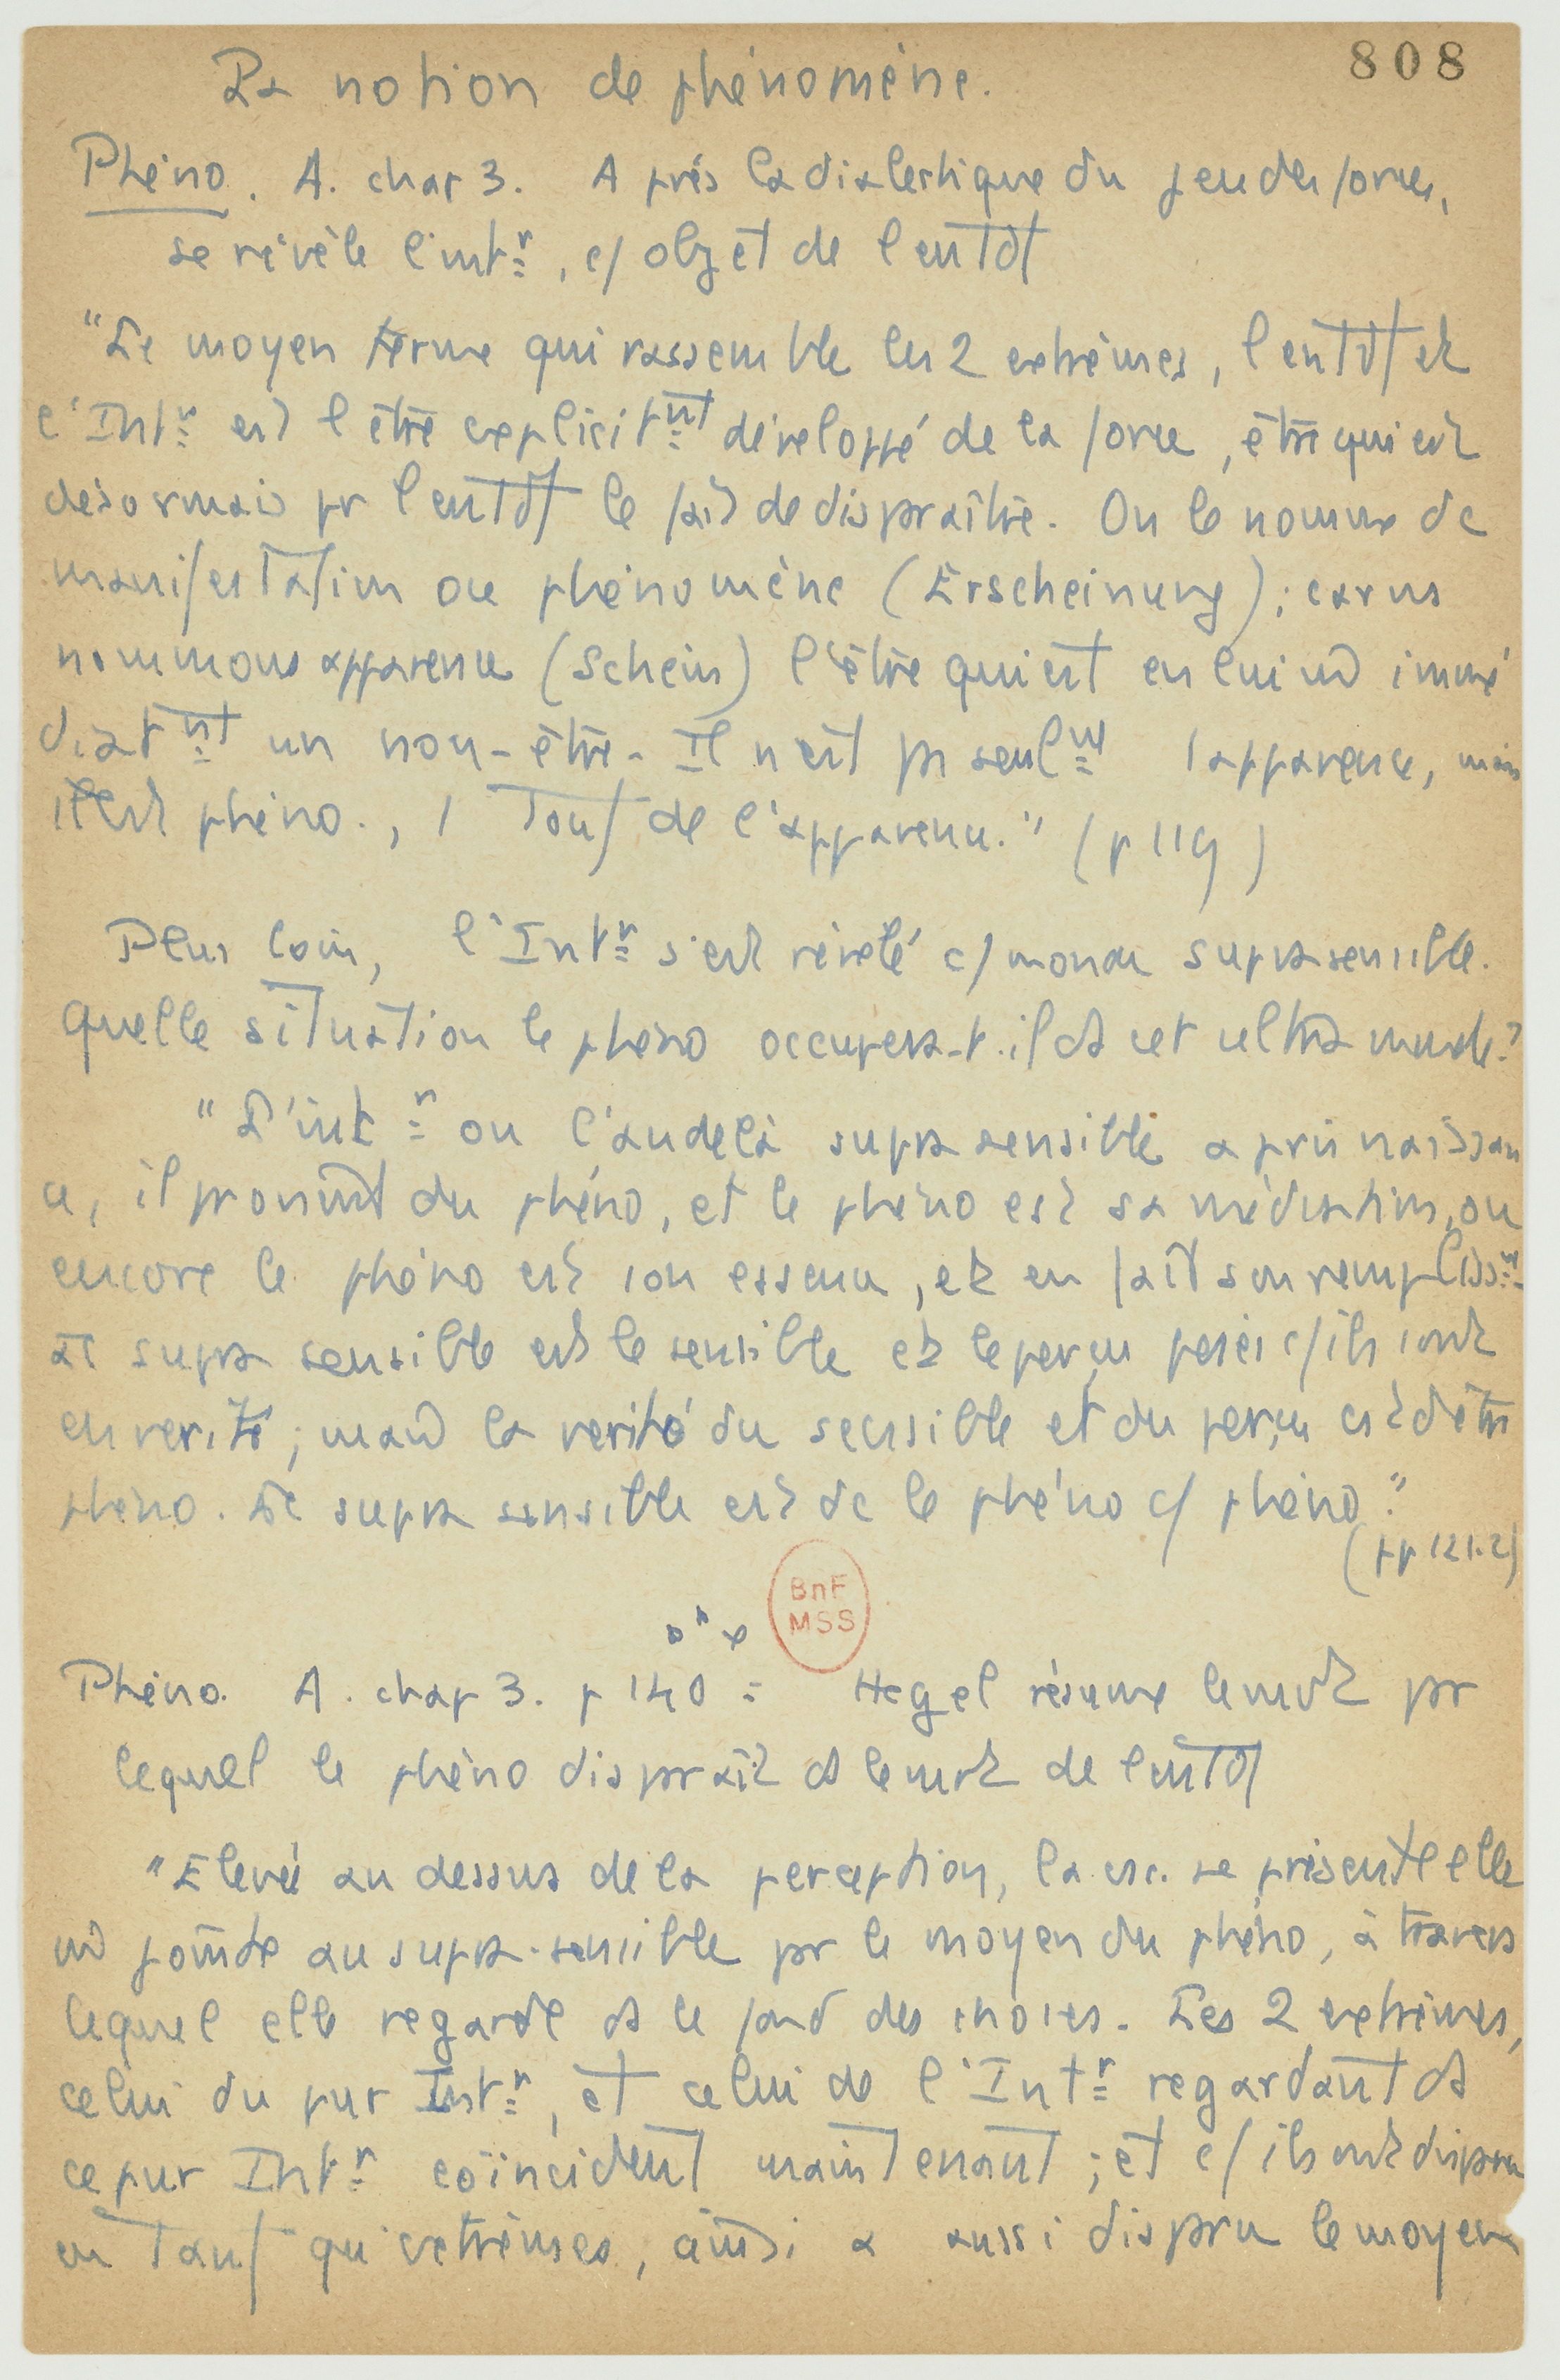 808
La notion de phénomène.
Phéno. A. chap 3. Après la dialectique du jeu des forces,
se révèle l'intr, c/ objet de l'entdt
"Le moyen terme qui rassemble les 2 extrêmes, l'entdt et
l'Intr est l'être explicitmt développé de la force, être qui est
désormais pr l'entdt le fait de disparaître. On le nomme dc
manifestation ou phénomène (Erscheinung); car ns
nommons apparence (Schein) l'être qui est en lui m immé
diatmt un non-être. Il n'est pas seulmt 1 apparence, mais
il est phéno., 1 Tout de l'apparence." (p 119)
Plus loin, l'Intr s'est révélé c/ monde suprasensible.
Quelle situation le phéno occupera-t-il ds cet ultra monde?
"L'intr ou l'audelà supra sensible a pris naissan
ce, il provient du phéno, et le phéno est sa médiation, ou
encore le phéno est son essence, et en fait son remplisst.
Le supra sensible est le sensible et le perçu posés c/ ils sont
en verité; mais la verité du sensible et du perçu est d'être
phéno. Le supra sensible est dc le phéno c/ phéno."
(pp 121.2)
BnF
MSS
Phéno. A. chap 3. p 140 : Hegel résume le mvt par
lequel le phéno disparaît ds le mvt de l'entdt
"Elevée au dessus de la perception, la csc. se présente elle
m jointe au supra-sensible par le moyen du phéno, à travers
lequel elle regarde ds le fond des choses. Les 2 extrêmes,
celui du pur Intr, et celui de l'Intr regardant ds
ce pur Intr coïncident maintenant; et c/ ils ont disparu
en tant qu'extrêmes, ainsi a aussi disparu le moyen